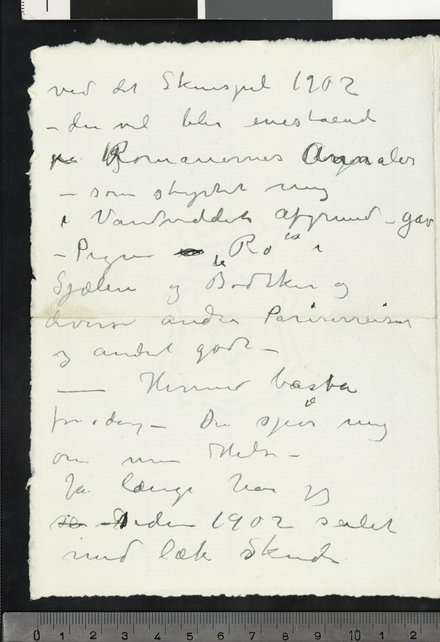 ved det Skuespil 1902
– der vil blive enestaaend
i Romanernes Annaler
– som styrtet mig
i Vandviddets afgrund – gav
– Pigen "Ro" i
Sjælen og Bødtker og
diverse andre Pariserreiser
og andet godt –
— Hermed basta
for idag – Du spør mig
om min Helse –
Ja længe har jeg
siden 1902 seilet
med læk Skude
0 1 2 3 4 5 6 7 8 9 10 1 2